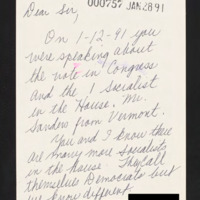 000757 JAN 28 91
Dear Sir,
On 1-12-91 you
were speaking about
the vote in Congress
and the 1 Socialist
in the House. Mr.
Sanders from Vermont.
You and I know there
are many more socialists
in the house. They call
themselves Democrats but
we know different.